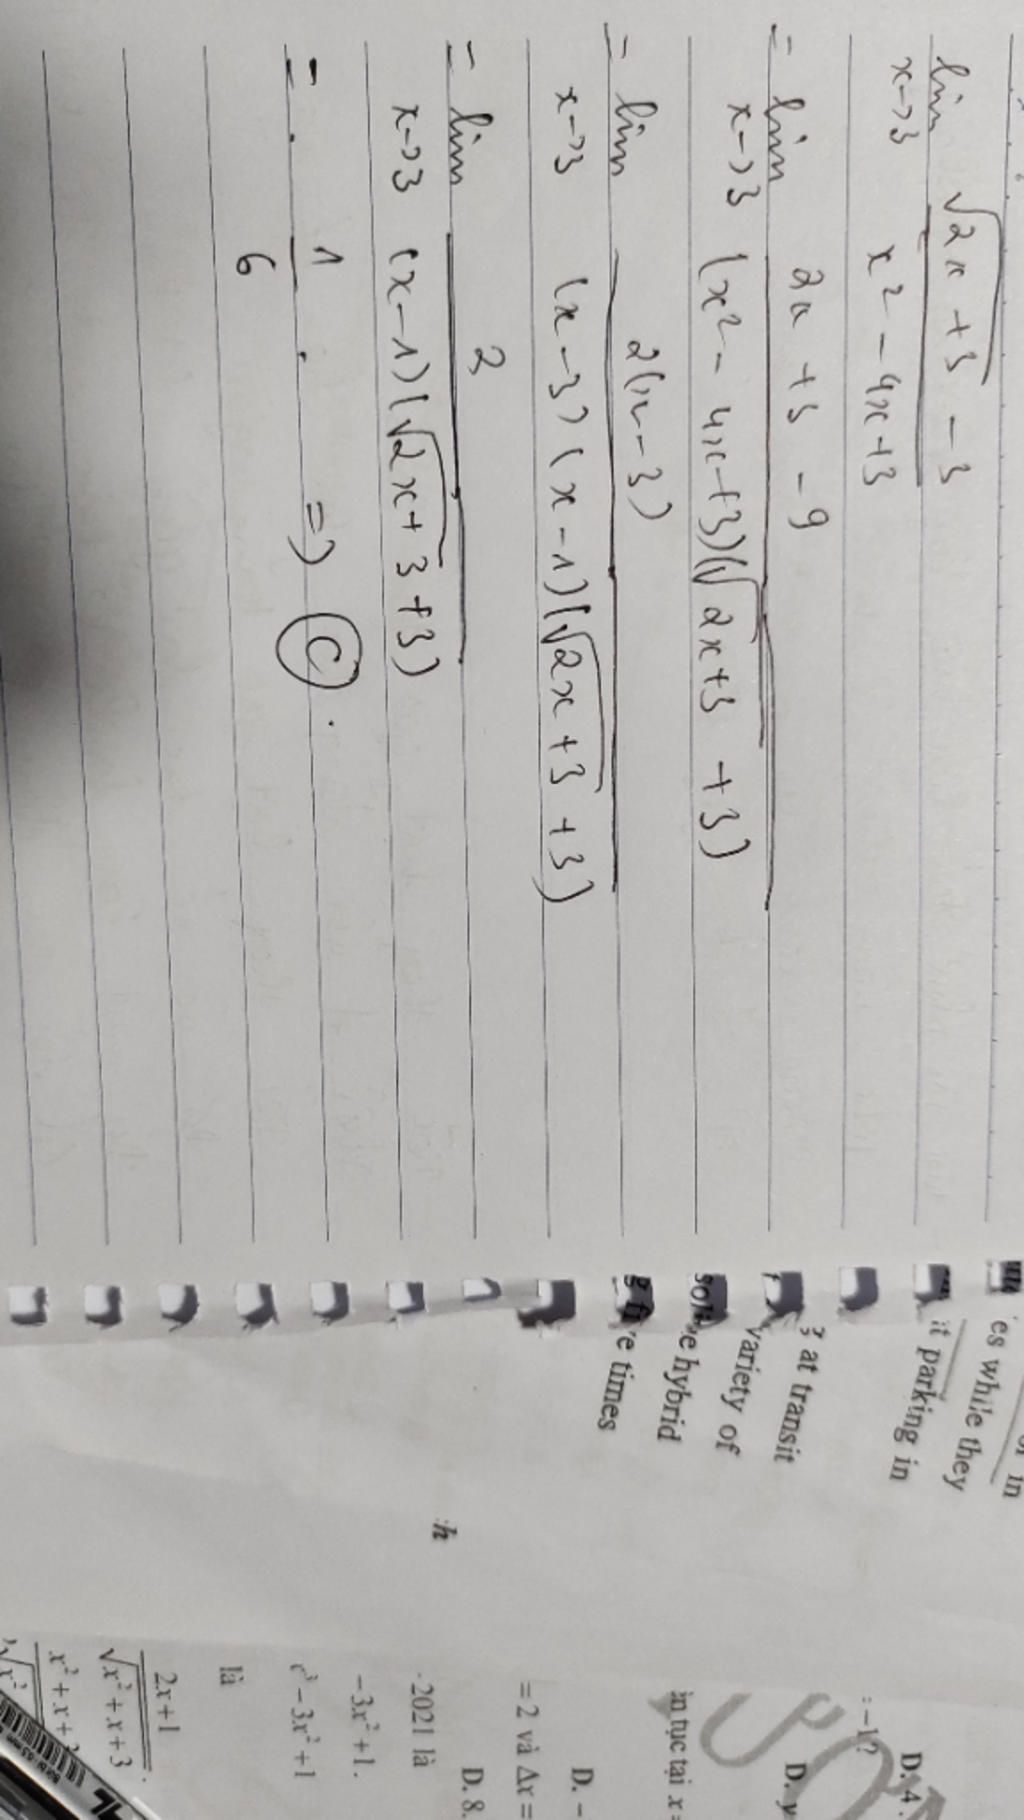 lim √2x+3 - 3
x->3 x² - 4x+3
= lim 2x + 3 - 9
x->3 (x² - 4x+3)(√2x+3 + 3)
= lim 2(x-3)
x->3 (x-3)(x-1)(√2x+3 + 3)
= lim 2
x->3 (x-1)(√2x+3+3)
= 1 => C.
6
in
es while they
it parking in
at transit
variety of
hybrid
times
:h
: -1?
D. 4
D. y
tục tại x
D. -
= 2 và Δx =
D. 8.
2021 là
-3x²+1.
-3x²+1
là
2x+1
√x²+x+3
x²+x+